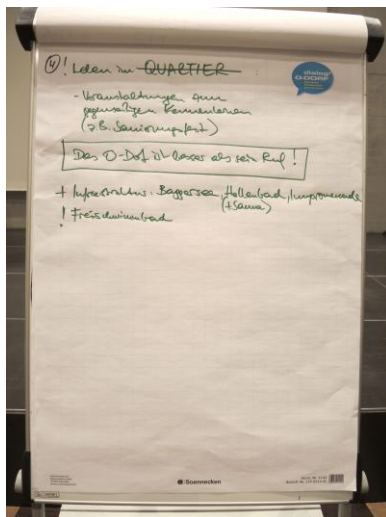 ④ ! Leben im QUARTIER
dialog
O-DORF
- Veranstaltungen zum
gegenseitigen Kennenlernen
(z.B. Sanierungsfest)
Das O-Dorf ist besser als sein Ruf !
+ Infrastruktur: Baggersee, Hallenbad, Innpromenade
(+ Sauna)
! Freischwimmbad
Soennecken